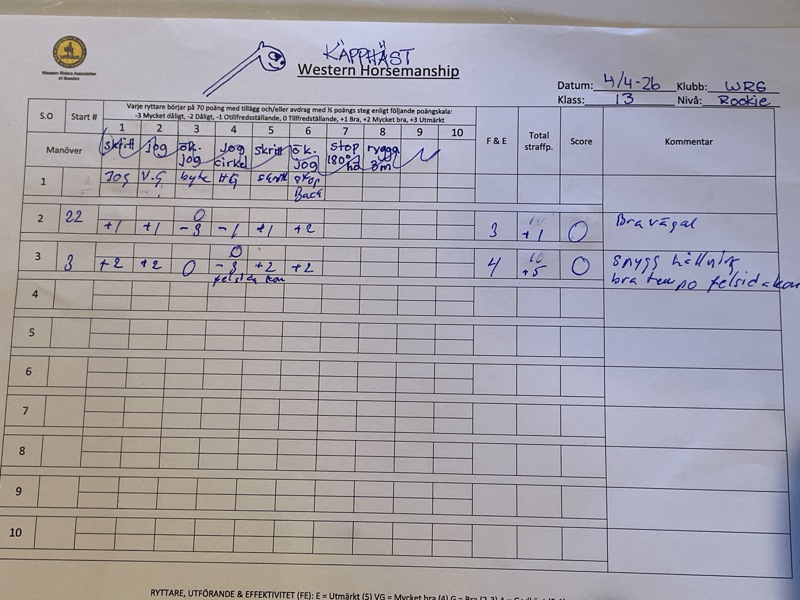 KÄPPHÄST
Western Horsemanship
WRAS
Western Riders Association
of Sweden
Datum: 4/4-26 Klubb: WRG
Klass: 13 Nivå: Rookie
S.O Start # Varje ryttare börjar på 70 poäng med tillägg och/eller avdrag med ½ poängs steg enligt följande poängskala:
-3 Mycket dåligt, -2 Dåligt, -1 Otillfredsställande, 0 Tillfredsställande, +1 Bra, +2 Mycket bra, +3 Utmärkt
1 2 3 4 5 6 7 8 9 10 F & E Total straffp. Score Kommentar
Manöver skritt jog ök. jog jog cirkel skritt ök. jog stop 180° rygg
1 Jog V.G byte HG skritt stop Back
2 22 +1 +1 0 -3 -1 +1 +2 3 10 +1 0 Bra vägal
3 3 +2 +2 0 0 -3 +2 +2 4 10 +5 0 snygg hållning
felsida kon bra tempo felsida kon
4
5
6
7
8
9
10
RYTTARE, UTFÖRANDE & EFFEKTIVITET (FE): E = Utmärkt (5) VG = Mycket bra (4) G = Bra